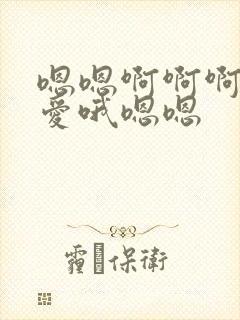 嗯嗯啊啊啊
爱哦嗯嗯
霾 保衛